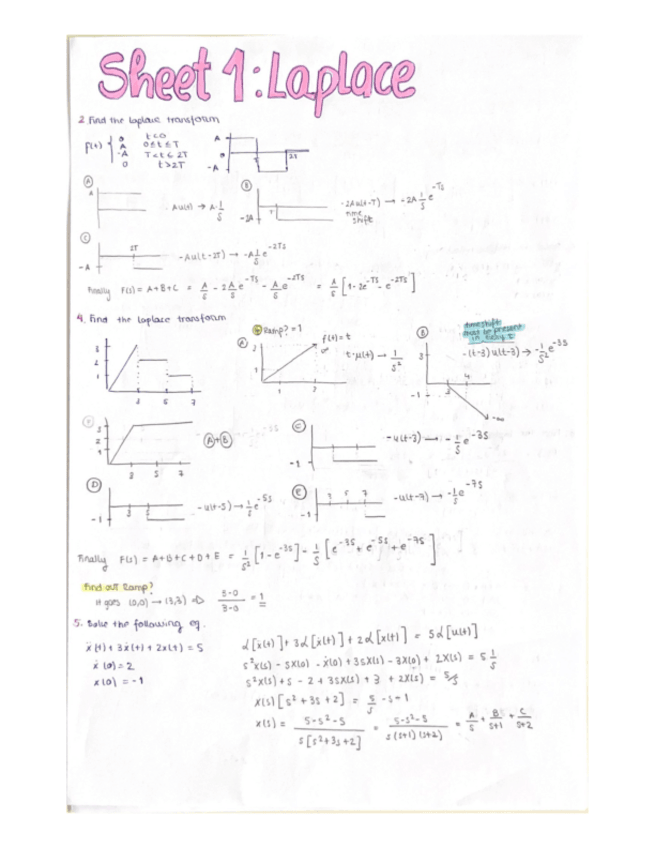 Sheet 1: Laplace
2. Find the laplace transform
f(t) { 0 t<0
A 0≤t≤T
-A T<t≤2T
0 t>2T
A
0
-A
T 2T
(A) A - Au(t) → A·1/s
(B) -2A T -2Au(t-T) → -2A 1/s e^-Ts
time shift
(C) -A 2T -Au(t-2T) → -A 1/s e^-2Ts
Finally F(s) = A+B+C = A/s - 2A/s e^-Ts - A/s e^-2Ts = A/s [1-2e^-Ts - e^-2Ts]
4. Find the laplace transform
3 2 1 3 5 7
(A) Ramp? = 1 f(t)=t
2 1 1 2
t·u(t) → 1/s²
(B) time shift must be present in every t
-(t-3) u(t-3) → -1/s² e^-3s
3 -1 3 4 -∞
3 2 1 3 5 7 (A)+(B)
(C) -1 -u(t-3) → -1/s e^-3s
(D) -1 3 5 -u(t-5) → 1/s e^-5s
(E) -1 3 5 7 -u(t-7) → -1/s e^-7s
Finally F(s) = A+B+C+D+E = 1/s² [1-e^-3s] - 1/s [e^-3s + e^-5s + e^-7s]
Find out Ramp?
it goes (0,0) → (3,3) ⇒ 3-0/3-0 = 1
5. Solve the following eq.
ẍ(t) + 3ẋ(t) + 2x(t) = 5
ẋ(0) = 2
x(0) = -1
ℒ[ẍ(t)] + 3ℒ[ẋ(t)] + 2ℒ[x(t)] = 5ℒ[u(t)]
s²x(s) - sx(0) - ẋ(0) + 3sx(s) - 3x(0) + 2x(s) = 5 1/s
s²x(s) + s - 2 + 3sx(s) + 3 + 2x(s) = 5/s
x(s) [s² + 3s + 2] = 5/s - s - 1
x(s) = 5-s²-s / s[s²+3s+2] = 5-s²-s / s(s+1)(s+2) = A/s + B/s+1 + C/s+2